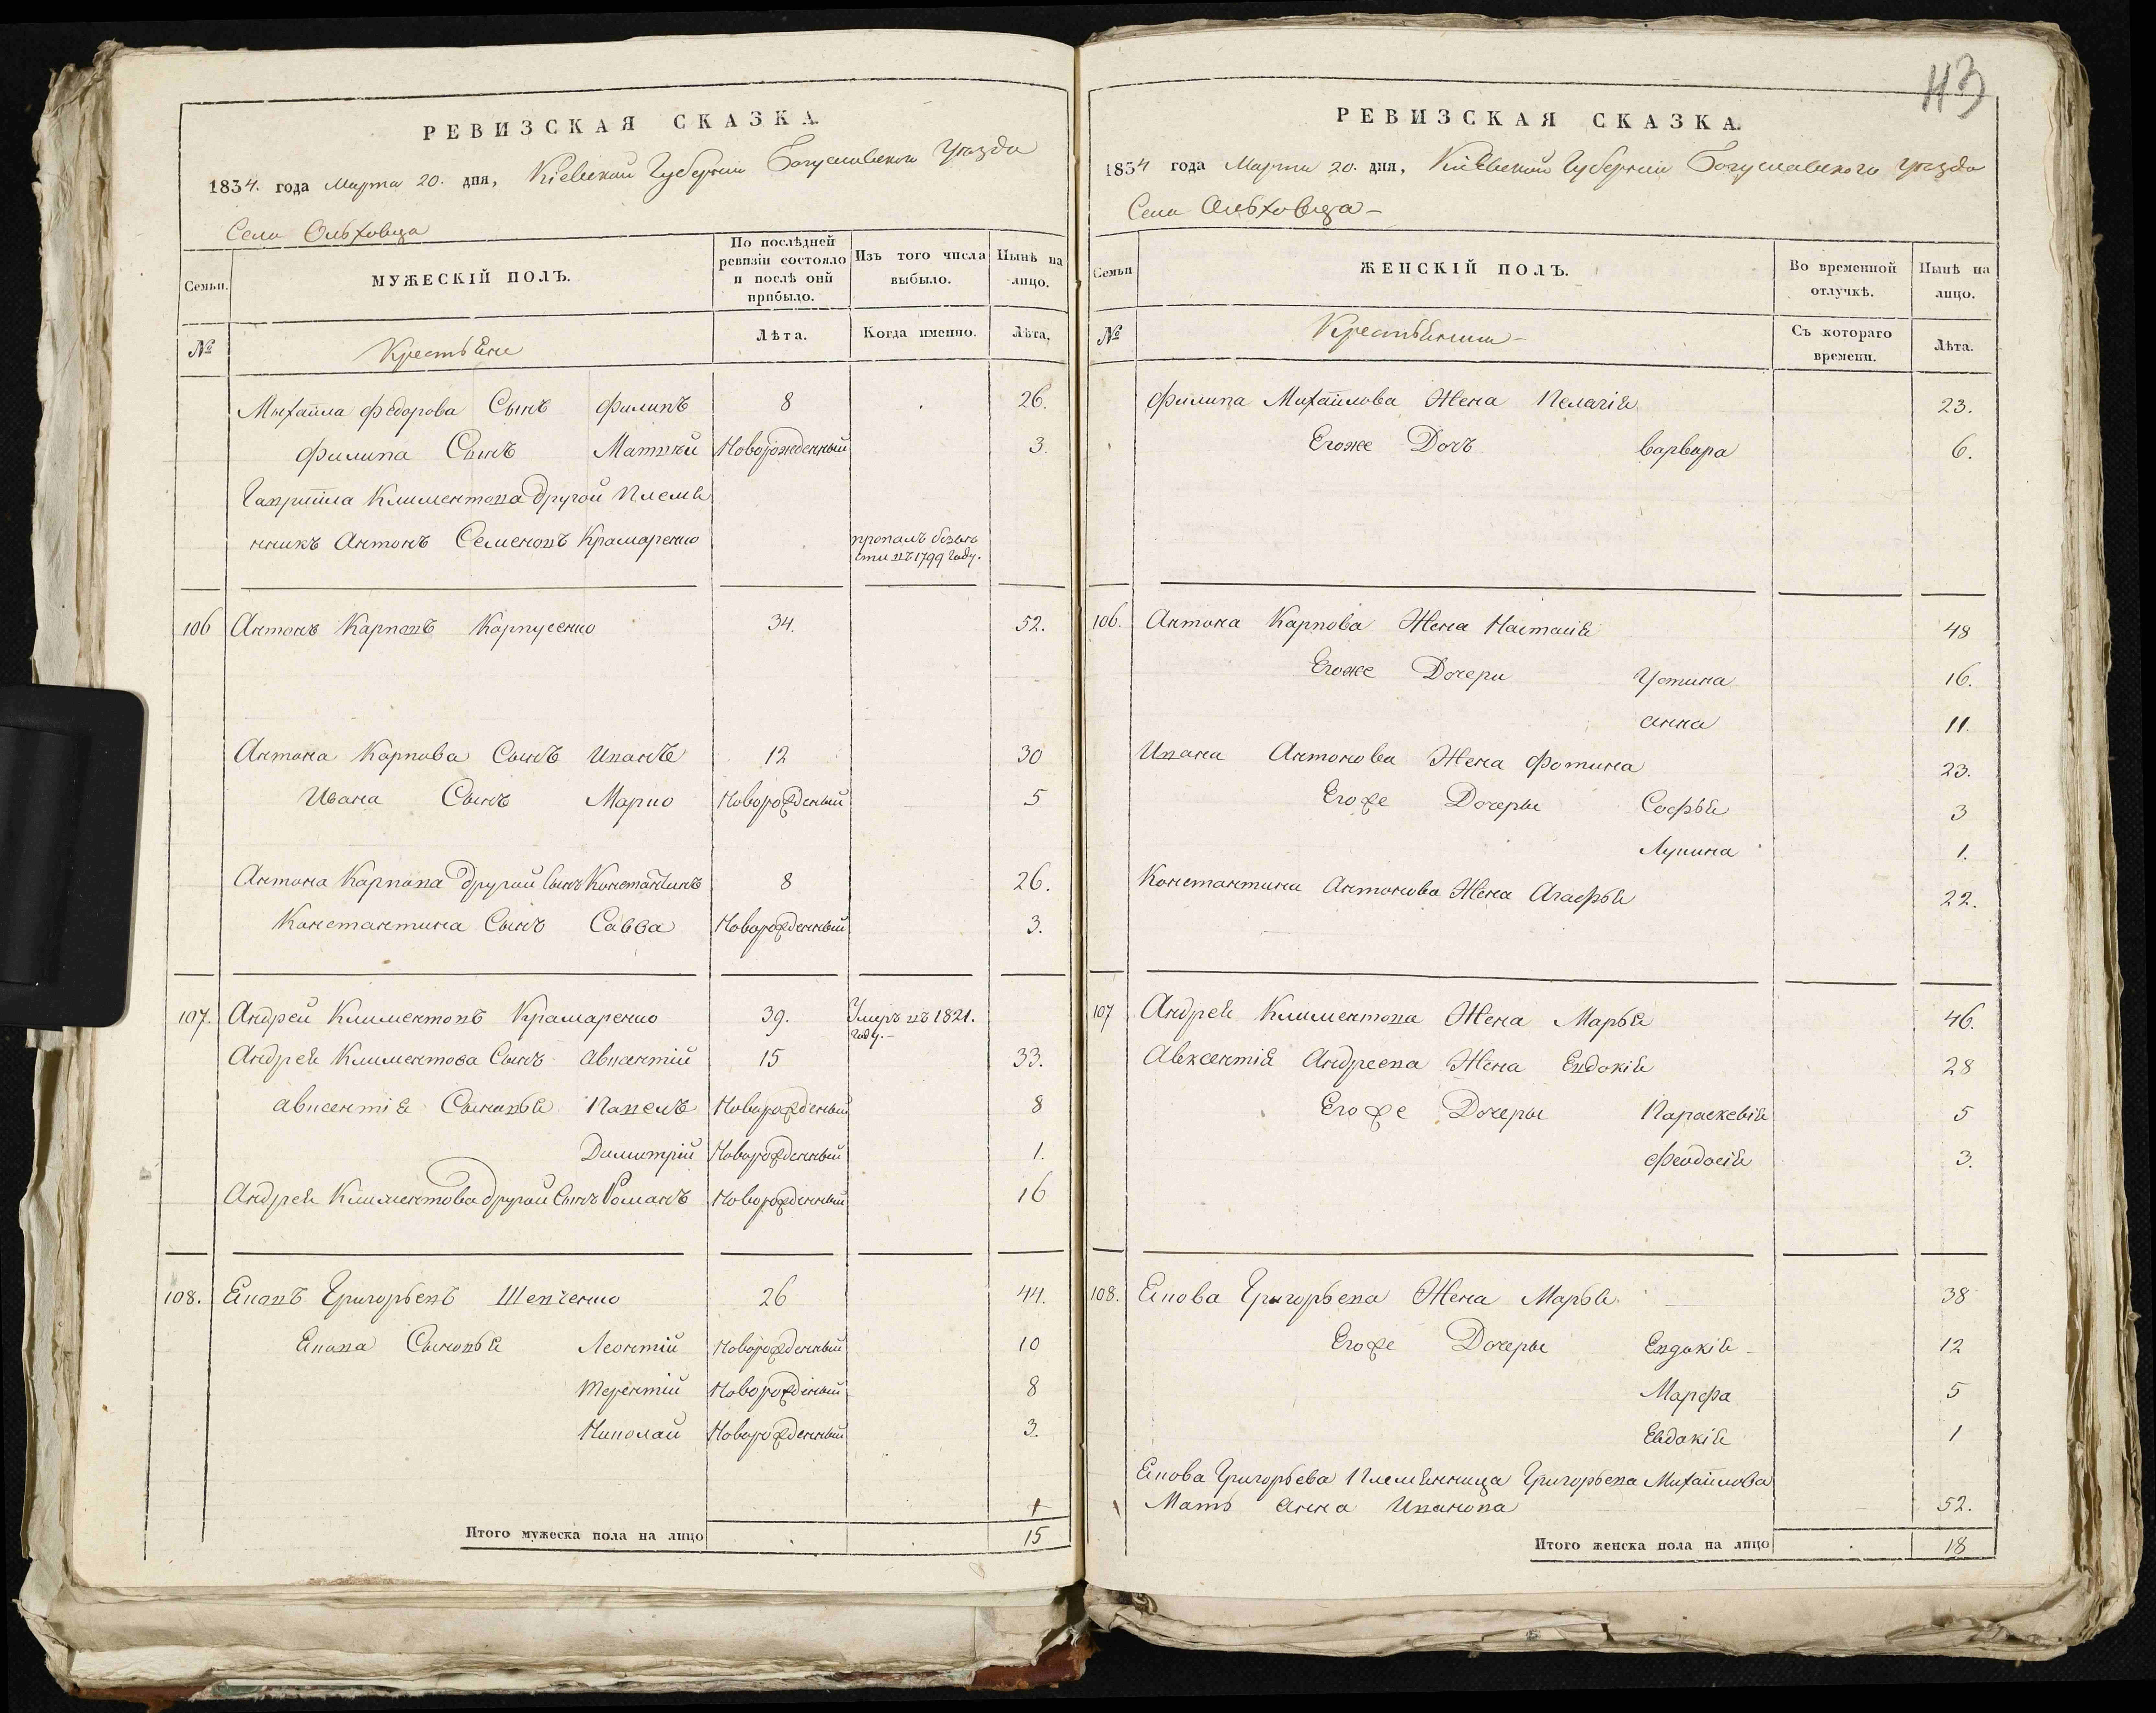 РЕВИЗСКАЯ СКАЗКА.
1834. года Марта 20. дня, Кіевской Губерніи Богуславского Уѣзда
Села Ольховца
Семьи.
МУЖЕСКІЙ ПОЛЪ.
По послѣдней ревизіи состояло и послѣ оий прибыло.
Изъ того числа выбыло.
Нынѣ на лицо.
№
Крестьяне
Лѣта.
Когда именно.
Лѣта.
Михайла Федорова Сынъ Филипъ 8 26.
Филипа Сынъ Матвѣй Новорожденный 3.
Гаврійла Климентова другой Племя
нникъ Антонъ Семеновъ Крамаренко пропалъ безвѣ
сти въ 1799 Году.
106 Антонъ Карповъ Карпусенко 34. 52.
Антона Карпова Сынъ Иванъ 12 30
Ивана Сынъ Марко Новорожденный 5
Антона Карпова другой Сынъ Константинъ 8 26.
Константина Сынъ Савва Новорожденный 3.
107. Андрей Климентовъ Крамаренко 39. Умеръ въ 1821.
Году.
Андрея Климентова Сынъ Авксентій 15 33.
Авксентія Сыновья Павелъ Новорожденый 8
Димитрій Новорожденный 1.
Андрея Климентова другой Сынъ Романъ Новорожденный 16
108. Яковъ Григорьевъ Шевченко 26 44.
Якова Сыновья Леонтій Новорожденный 10
Терентій Новорожденый 8
Николай Новорожденный 3.
Итого мужеска пола на лицо 15
113
РЕВИЗСКАЯ СКАЗКА.
1834 года Марта 20. дня, Кіевской Губерніи Богуславского Уѣзда
Села Ольховца
Семьи
ЖЕНСКІЙ ПОЛЪ.
Во временной отлучкѣ.
Нынѣ на лицо.
№
Крестьянки
Съ котораго времени.
Лѣта.
Филипа Михайлова Жена Пелагія 23.
Егоже Дочъ Варвара 6.
106. Антона Карпова Жена Настасія 48
Егоже Дочери Устина 16.
Анна 11.
Ивана Антонова Жена Фотина 23.
Егоже Дочеры Софья 3
Лукина 1.
Константина Антонова Жена Агафья 22.
107 Андрея Климентова Жена Марья 46.
Авксентія Андреева Жена Евдокія 28
Егоже Дочеры Параскевія 5
Феодосія 3.
108. Якова Григорьева Жена Марья 38
Егоже Дочеры Евдокія 12
Марфа 5
Евдокія 1
Якова Григорьева Племянница Григорьева Михайлова
Мать Анна Иванова 52.
Итого женска пола на лицо 18